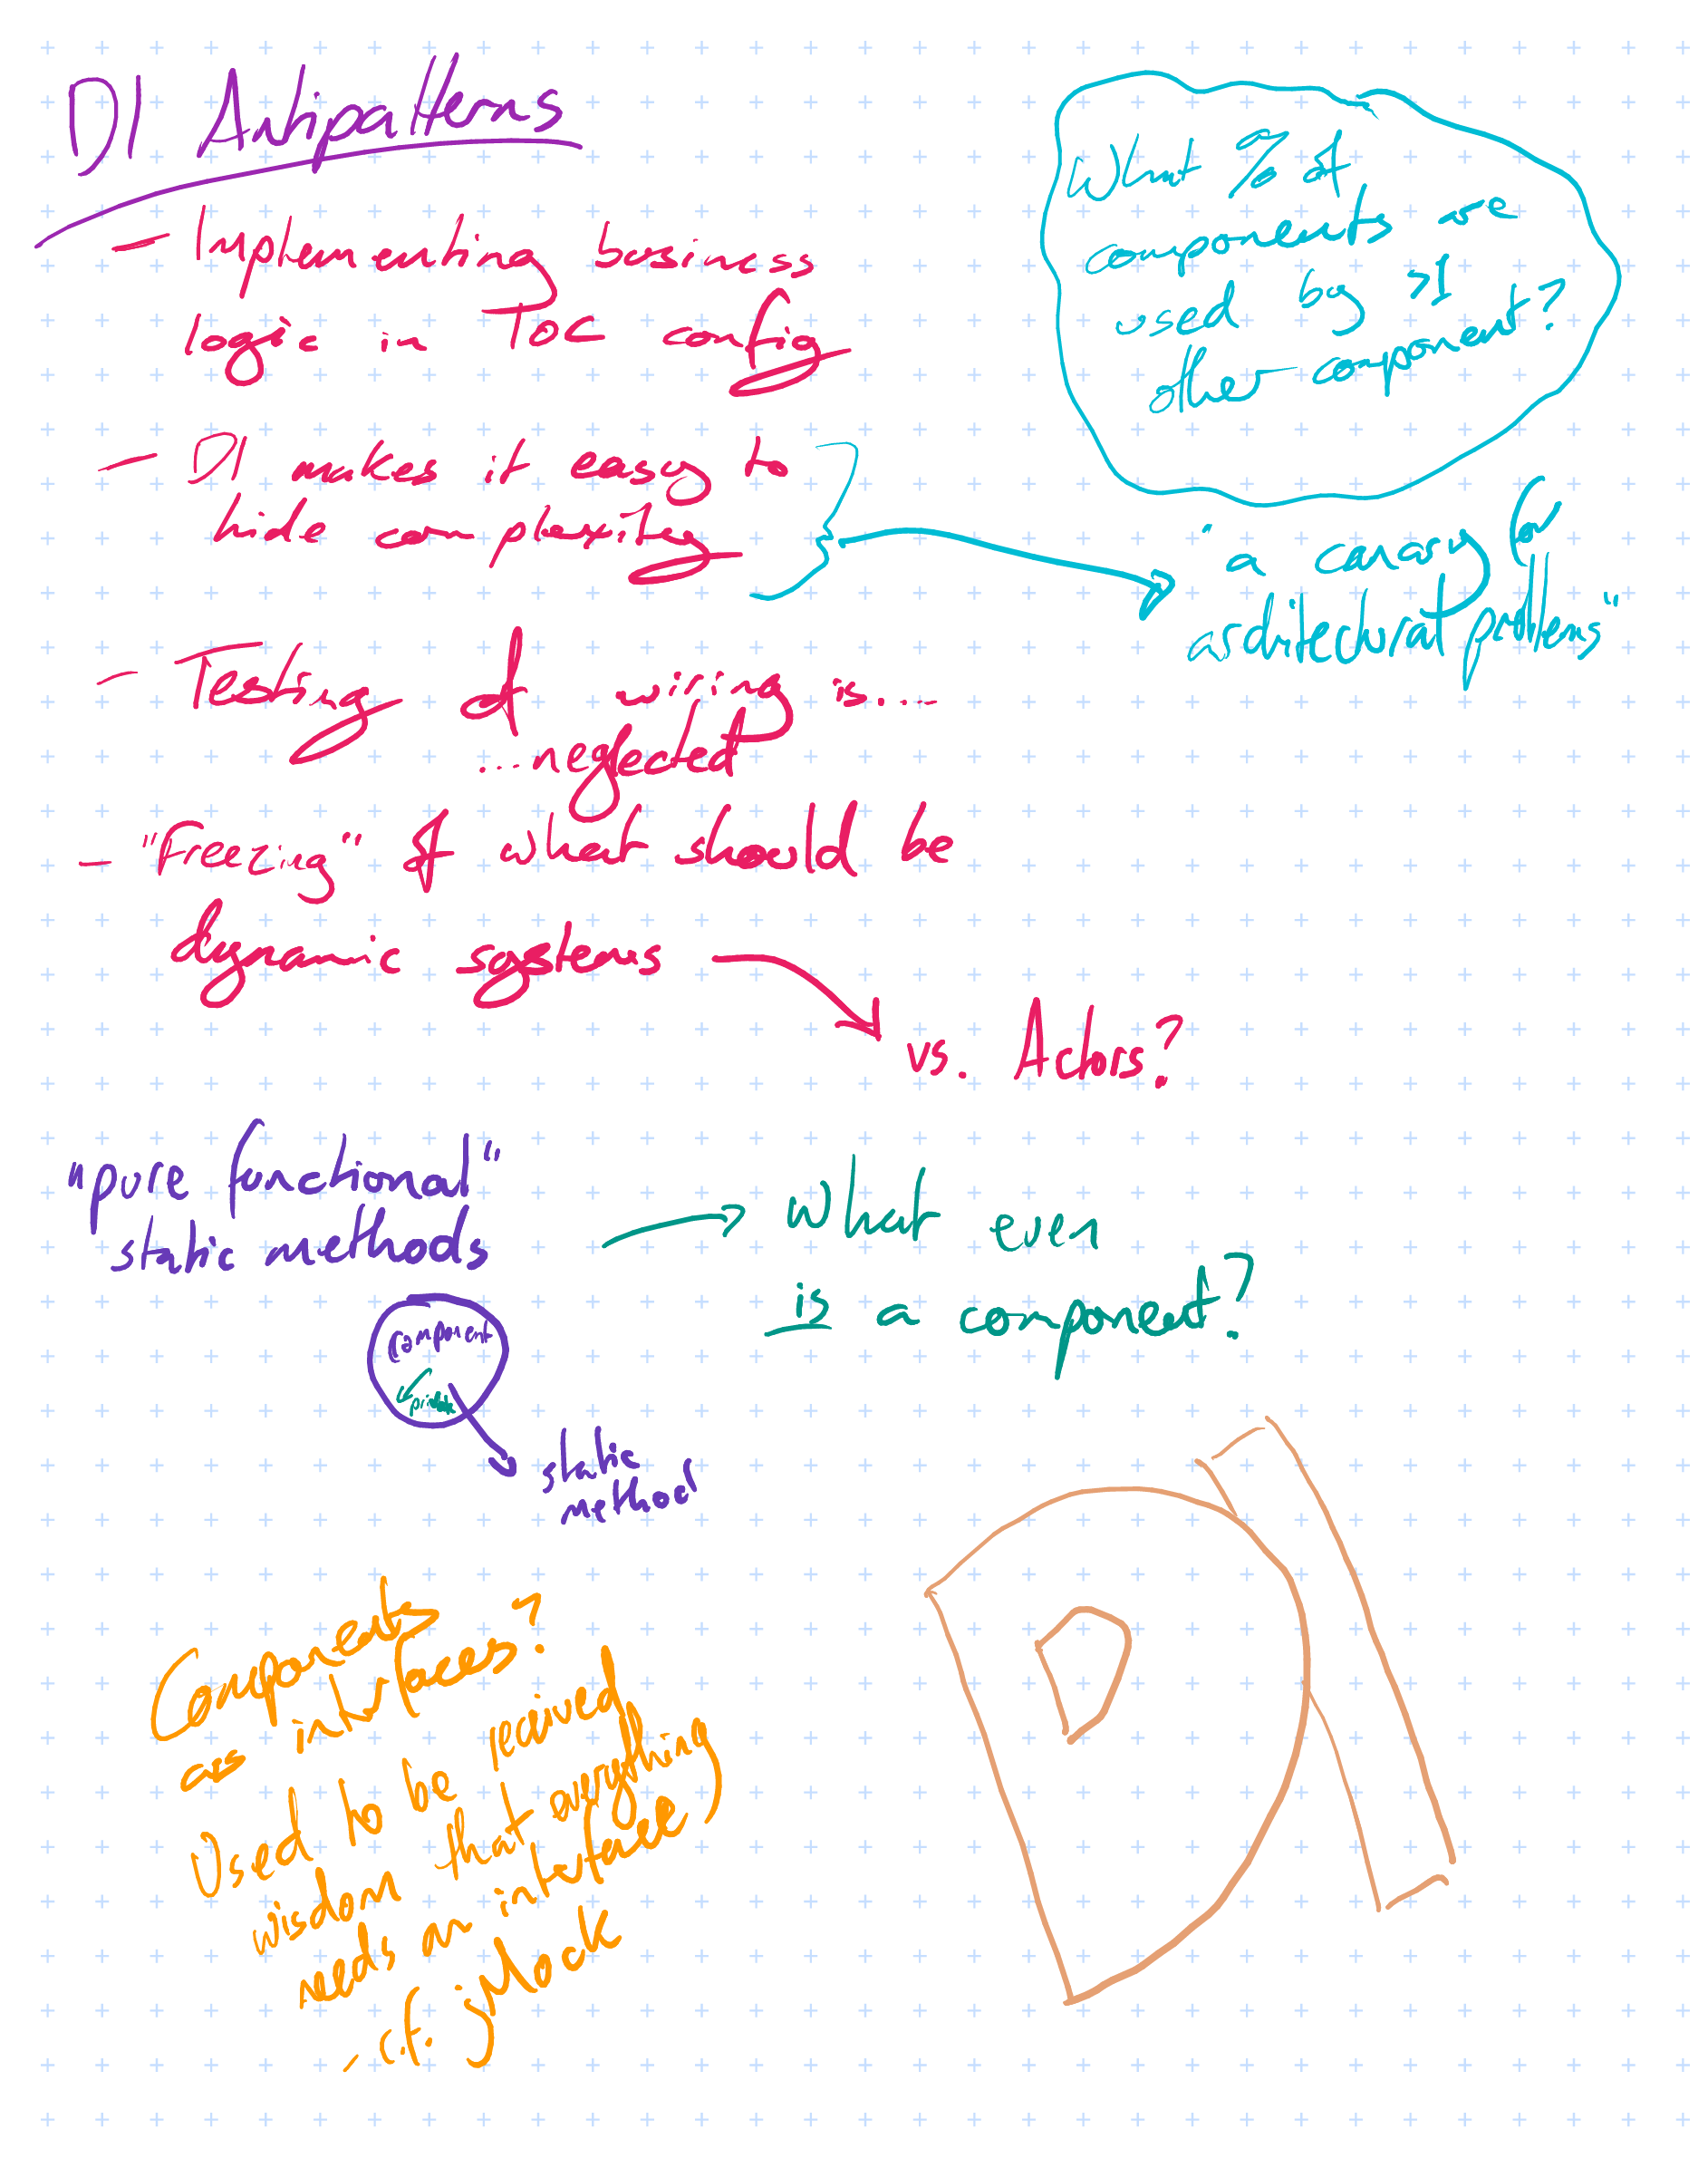 DI Antipatterns
- Implementing business
logic in IOC config
- DI makes it easy to
hide complexity
- Testing of wiring is....
...neglected
- "Freezing" of what should be
dynamic systems
vs. Actors?
What % of
components are
used by >1
other component?
"a canary for
architectural problems"
"pure functional"
static methods
What even
is a component?
component
private
static
method
Components
as interfaces?
Used to be received
wisdom that everything
needs an interface
- c.f. jMock
DI